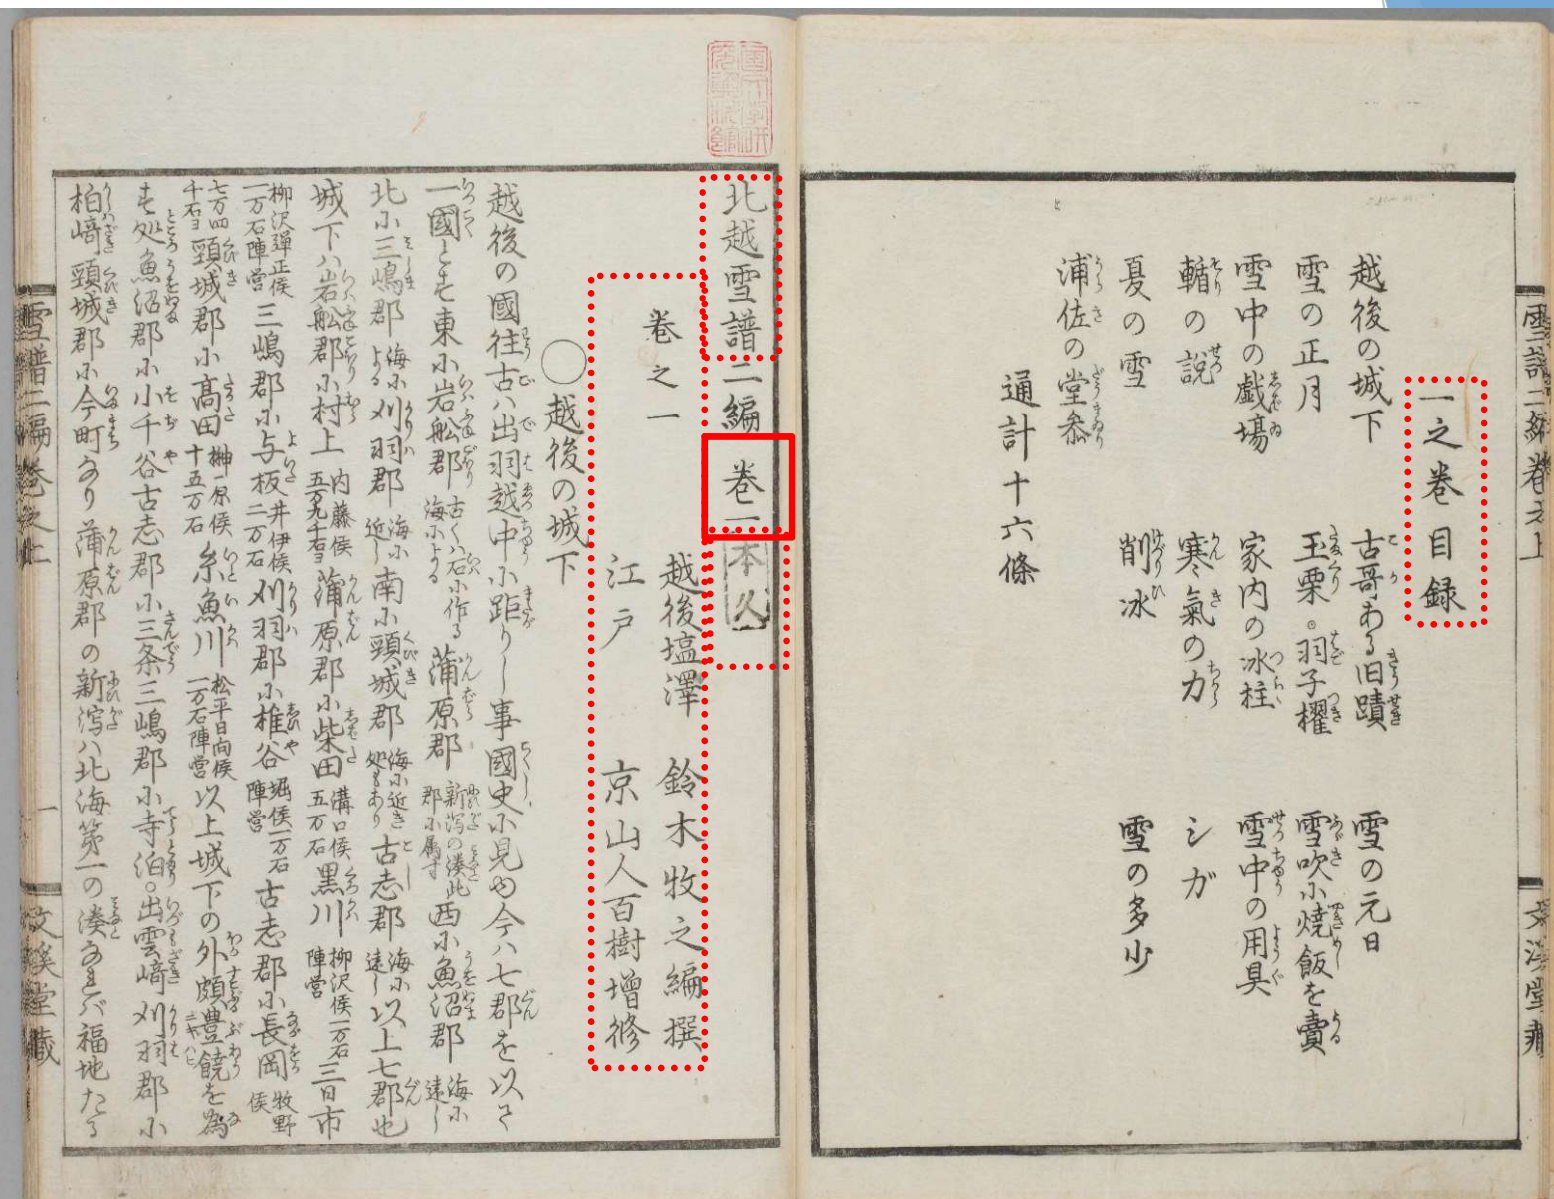 一之巻目録
越後の城下
古哥ある旧蹟
雪の元日
雪の正月
玉栗。羽子擢
雪吹小焼飯を賣
雪中の戯場
家内の冰柱
雪中の用具
轌の説
寒氣の力
シガ
夏の雪
削冰
雪の多少
浦佐の堂叅
通計十六條
北越雪譜二編巻一
巻之一
越後塩澤 鈴木牧之編撰
江戸 京山人百樹増修
〇越後の城下
越後の國往古ハ出羽越中小距りし事國史小見ゆ今ハ七郡を以て
一國とす東小岩舩郡 古くハ石小作る海小よる 蒲原郡 新潟の湊此郡小属す 西小魚沼郡 海小遠し
北小三嶋郡 海小よる 刈羽郡 海小近し 南小頸城郡 海小近き処もあり 古志郡 海小遠し 以上七郡也
城下ハ岩舩郡小村上 内藤侯五万九千石ヨ 蒲原郡小柴田 溝口侯五万石 黒川 柳沢侯一万石陣営 三日市
柳沢弾正侯一万石陣営 三嶋郡小与板 井伊侯二万石 刈羽郡小椎谷 堀侯一万石陣営 古志郡小長岡 牧野侯
七万四千石ヨ 頸城郡小髙田 榊原侯十五万石 糸魚川 松平日向侯一万石陣営 以上城下の外頗豊饒を為
す処魚沼郡小小千谷古志郡小三条三嶋郡小寺泊。出雲﨑刈羽郡小
柏﨑頸城郡小今町あり蒲原郡の新潟ハ北海第一の湊なれバ福地たる
雪譜二編巻之上
一
文溪堂藏